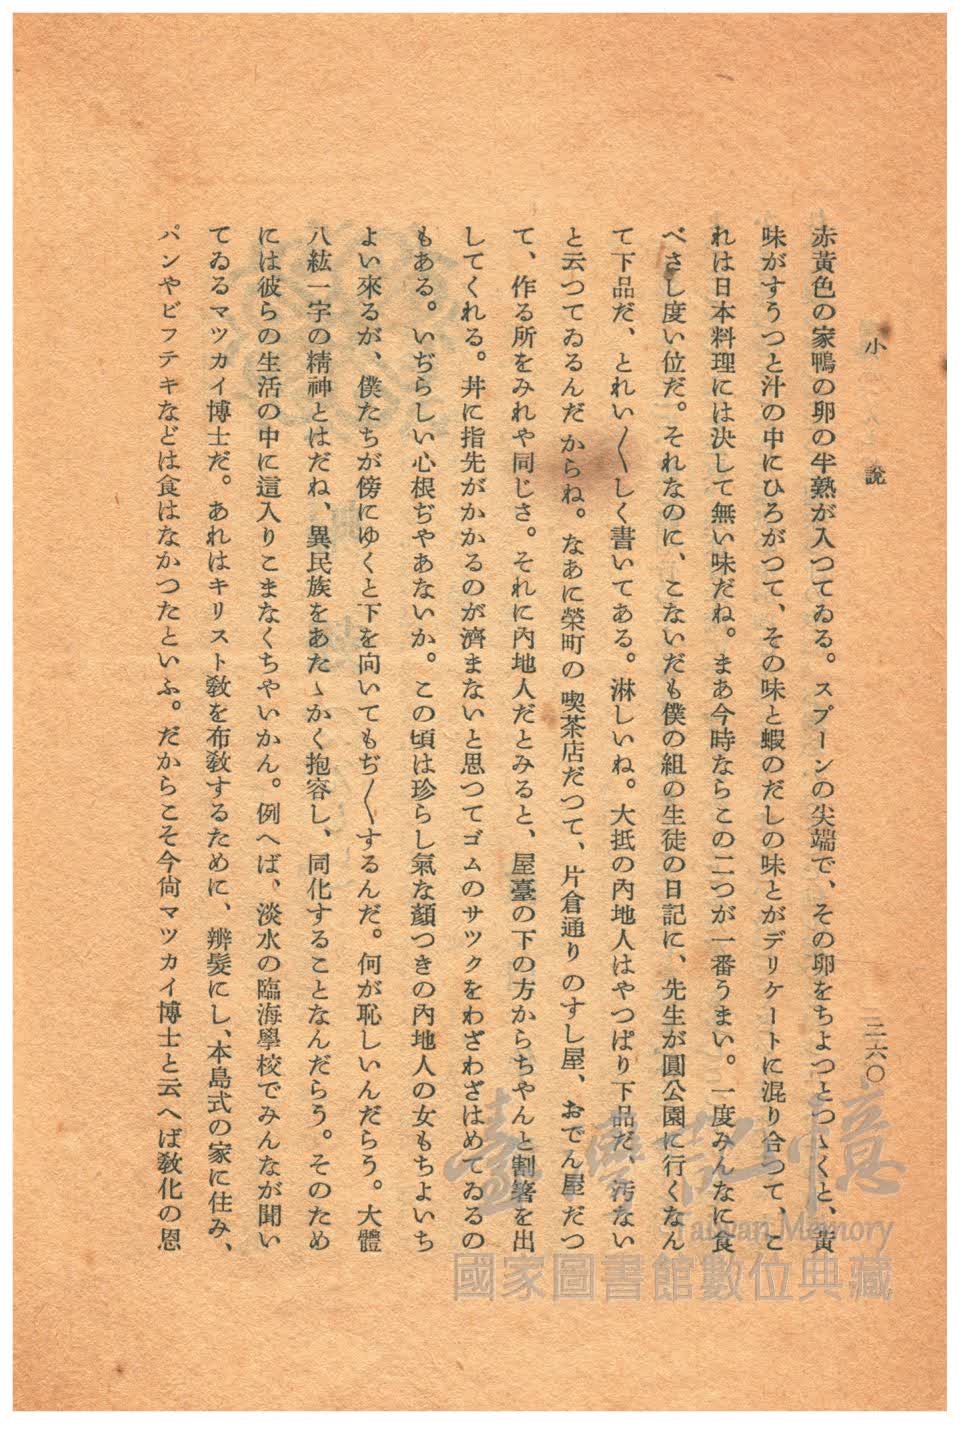 小說
三六〇
赤黃色の家鴨の卵の半熟が入つてゐる。スプーンの尖端で、その卵をちよつとつゝくと、黃
味がすうつと汁の中にひろがつて、その味と蝦のだしの味とがデリケートに混り合つて、こ
れは日本料理には決して無い味だね。まあ今時ならこの二つが一番うまい。一度みんなに食
べさし度い位だ。それなのに、こないだも僕の組の生徒の日記に、先生が圓公園に行くなん
て下品だ、とれい〱しく書いてある。淋しいね。大抵の內地人はやつぱり下品だ、汚ない
と云つてゐるんだからね。なあに榮町の喫茶店だつて、片倉通りのすし屋、おでん屋だつ
て、作る所をみれや同じさ。それに內地人だとみると、屋臺の下の方からちやんと割箸を出
してくれる。丼に指先がかかるのが濟まないと思つてゴムのサツクをわざわざはめてゐるの
もある。いぢらしい心根ぢやあないか。この頃は珍らし氣な顏つきの內地人の女もちよいち
よい來るが、僕たちが傍にゆくと下を向いてもぢ〱するんだ。何が恥しいんだらう。大體
八紘一宇の精神とはだね、異民族をあたゝかく抱容し、同化することなんだらう。そのため
には彼らの生活の中に這入りこまなくちやいかん。例へば、淡水の臨海學校でみんなが聞い
てゐるマツカイ博士だ。あれはキリスト敎を布敎するために、辨髮にし、本島式の家に住み、
パンやビフテキなどは食はなかつたといふ。だからこそ今尙マツカイ博士と云へば敎化の恩
臺灣記憶
Taiwan Memory
國家圖書館數位典藏